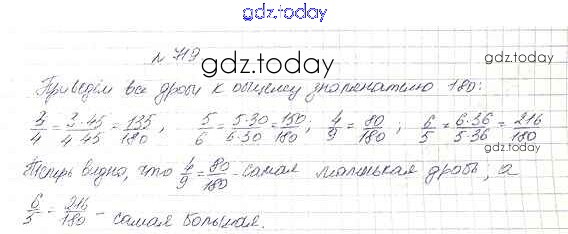 gdz.today
№ 719
gdz.today
Приведём все дроби к общему знаменателю 180:
3/4 = 3·45/4·45 = 135/180, 5/6 = 5·30/6·30 = 150/180; 4/9 = 80/180; 6/5 = 6·36/5·36 = 216/180
gdz.today
Теперь видно, что 4/9 = 80/180 - самая маленькая дробь, а
6/5 = 216/180 - самая большая.
gdz.today